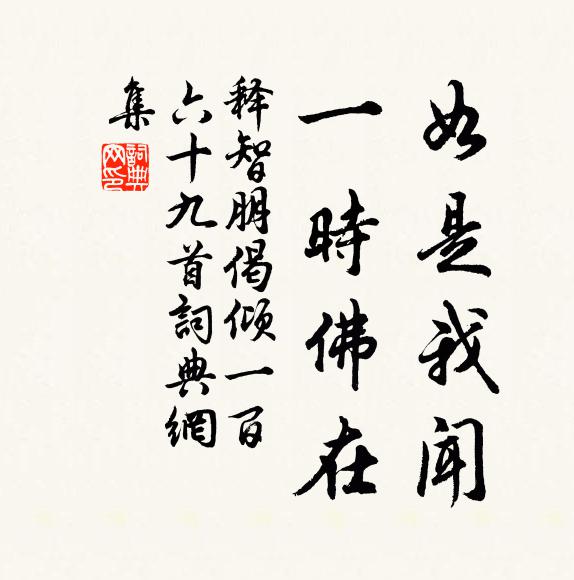 如是我聞
一時佛在
释智朋偈倾一百
六十九首詞典網
集
詞典
网印